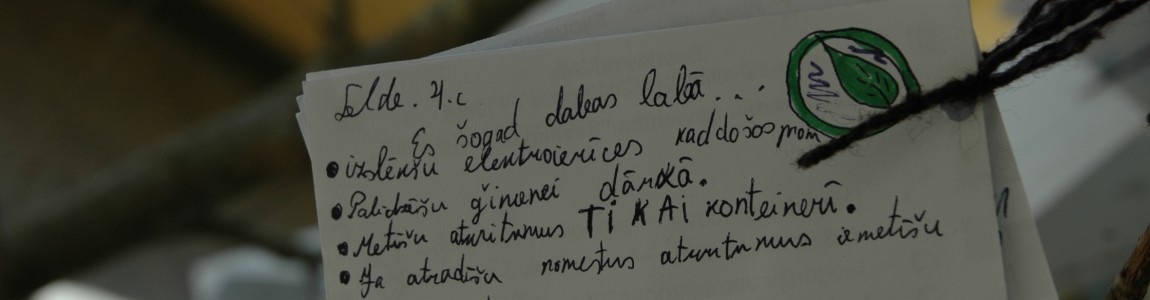 Elde. 4.c
Es šogad dabas labā...
• izslēnšu elentroierīces kad došos prom
• Palidzēšu ģimenei dārkā.
• Metīšu atkritumus TiKAi konteinerī.
• Ja atradīšu nomestus atkritumus iemetīšu